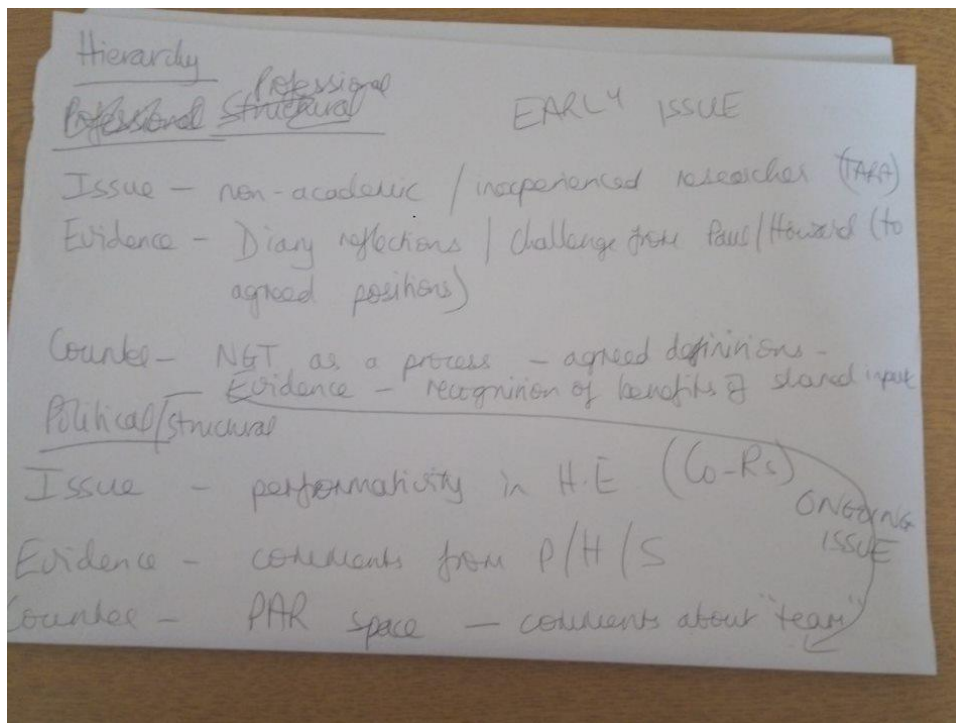 Hierarchy
Professional
Professional Structural
EARLY ISSUE
Issue – non-academic / inexperienced researcher (TARA)
Evidence – Diary reflections / Challenge from Paul/Howard (to
agreed positions)
Counter – NGT as a process – agreed definitions –
Evidence – recognition of benefits of shared input
Political/Structural
Issue – performativity in H.E (Co-Rs)
ONGOING
ISSUE
Evidence – comments from P/H/S
Counter – PAR space – comments about "team"